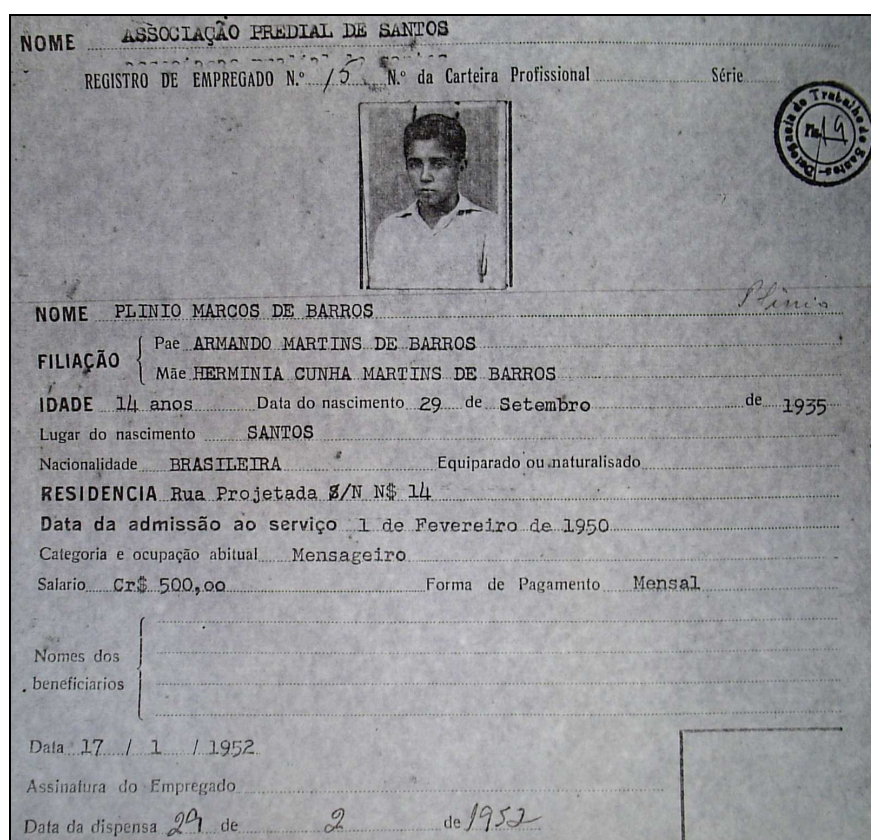 NOME ASSOCIAÇÃO PREDIAL DE SANTOS
REGISTRO DE EMPREGADO N.º 15 N.º da Carteira Profissional Série
Delegacia do Trabalho de Santos
19
NOME PLINIO MARCOS DE BARROS Plinio
FILIAÇÃO
Pae ARMANDO MARTINS DE BARROS
Mãe HERMINIA CUNHA MARTINS DE BARROS
IDADE 14 anos Data do nascimento 29 de Setembro de 1935
Lugar do nascimento SANTOS
Nacionalidade BRASILEIRA Equiparado ou naturalisado
RESIDENCIA Rua Projetada S/N N$ 14
Data da admissão ao serviço 1 de Fevereiro de 1950
Categoria e ocupação abitual Mensageiro
Salario Cr$ 500,oo Forma de Pagamento Mensal
Nomes dos
beneficiarios
Data 17 / 1 / 1952
Assinatura do Empregado
Data da dispensa 29 de 2 de 1952